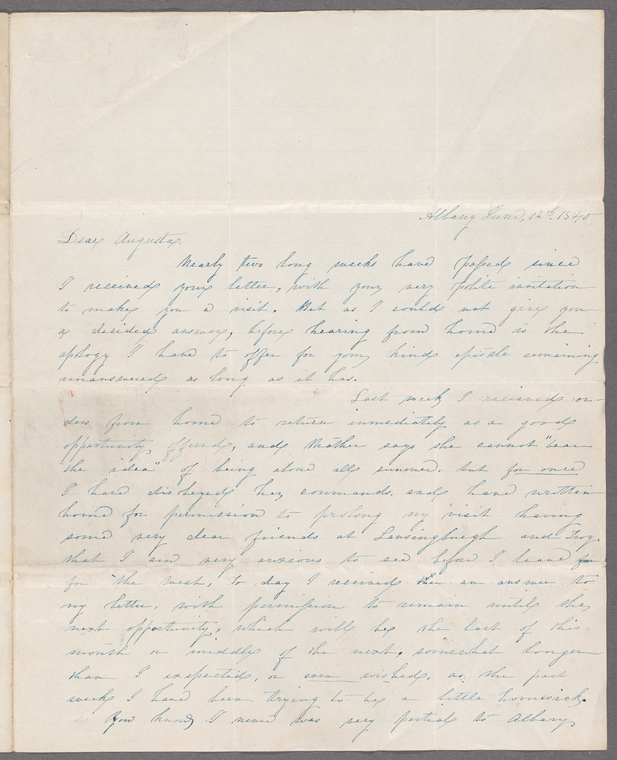 Albany June, 12th. 1840
Dear Augusta.
Nearly two long weeks have passed since
I received your letter, with your very polite invitation
to make you a visit. But as I could not give you
a decided answer, before hearing from home is the
apology I have to offer for your kind epistle remaining
unanswered as long as it has.
Last week I received or-
ders from home to return immediately as a good
opportunity offered, and Mother says she cannot "bear
the idea" of being alone all summer. but for once
I have disobeyed her commands. and have written
home for permission to prolong my visit having
some very dear friends at Lansingburgh and Troy.
that I am very anxious to see before I leave
for "the West," to day I received an answer to
my letter. with permission to remain until the
next opportunity, which will be the last of this
month or middle of the next. somewhat longer
than I expected, or even wished, as the past
week I have been trying to be a little homesick.
You know I never was very partial to Albany,